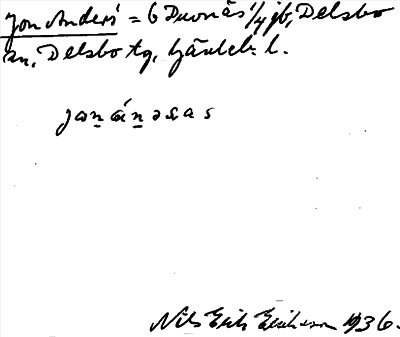 Jon Anders' = 6 Duvnäs 1/4 jb, Delsbo
sn, Delsbo tg, Gävleb. l.
jon ánəsas
Nils Erik Eriksson 1936.